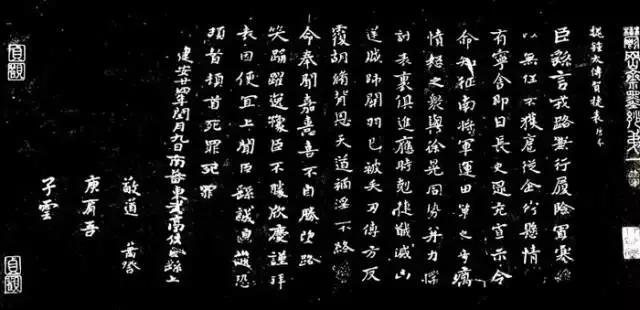 魏鍾太傅賀捷表
臣繇言戎路兼行履險冒寒臣
以無任不獲扈從企佇懸情無
有寧舍即日長史逯充宣示令
命知征南將軍運田單之奇厲
憤怒之眾與徐晃同勢并力撲
討表裏俱進應時剋捷馘滅凶
逆賊帥關羽已被矢刃傅方反
覆胡脩背恩天道禍淫不終
命奉聞嘉憙喜不自勝望路
笑踊躍逸豫臣不勝欣慶謹拜
表因便宜上聞臣繇誠皇誠恐
頓首頓首死罪死罪
建安廿四年閏月九日南蕃東武亭侯臣繇上
敬道
庾肩吾
子雲
貞觀
貞觀